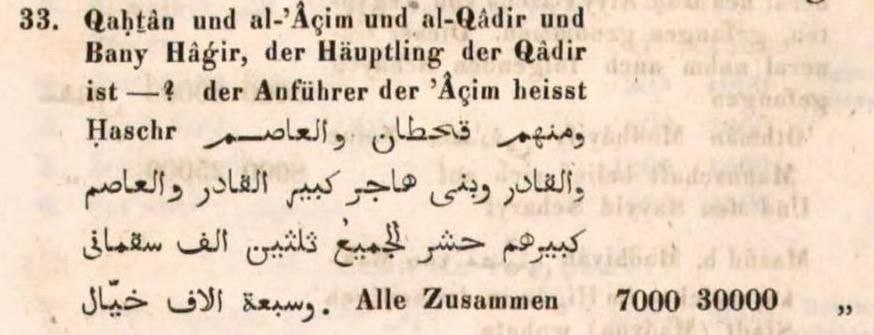 33. Qaḥṭân und al-’Âçim und al-Qâdir und
Bany Hâǵir, der Häuptling der Qâdir
ist —? der Anführer der ’Âçim heisst
Ḥaschr ومنهم قحطان والعاصم
والقادر وبنى هاجر كبير القادر والعاصم
كبيرهم حشر الجميع ثلثين الف سقمانى
وسبعة الاف خيّال. Alle Zusammen 7000 30000 „